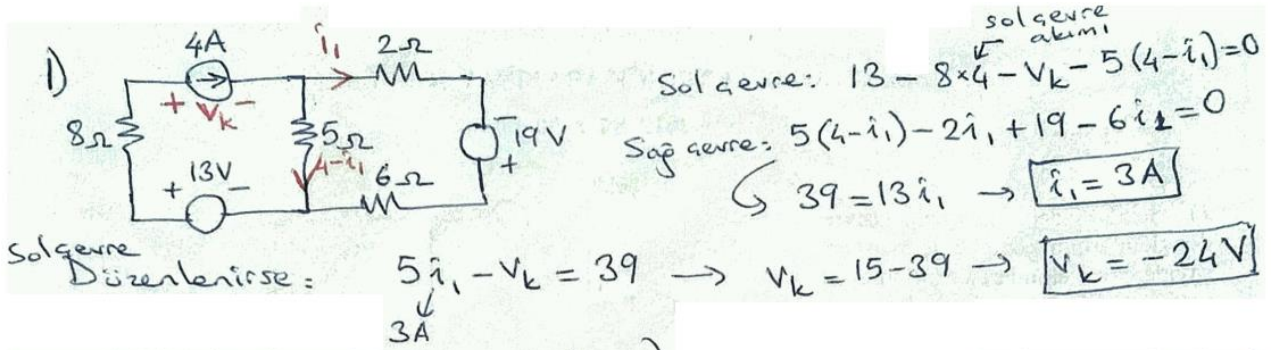 1)
4A
i₁
2Ω
+ Vk -
8Ω
5Ω
4-i₁
- 19V +
+ 13V -
6Ω
sol çevre akımı
Sol çevre: 13 - 8×4 - Vk - 5(4-i₁)=0
Sağ çevre: 5(4-i₁) - 2i₁ + 19 - 6i₁=0
39 = 13i₁ → i₁ = 3A
Sol çevre
Düzenlenirse: 5i₁ - Vk = 39 → Vk = 15-39 → Vk = -24V
3A